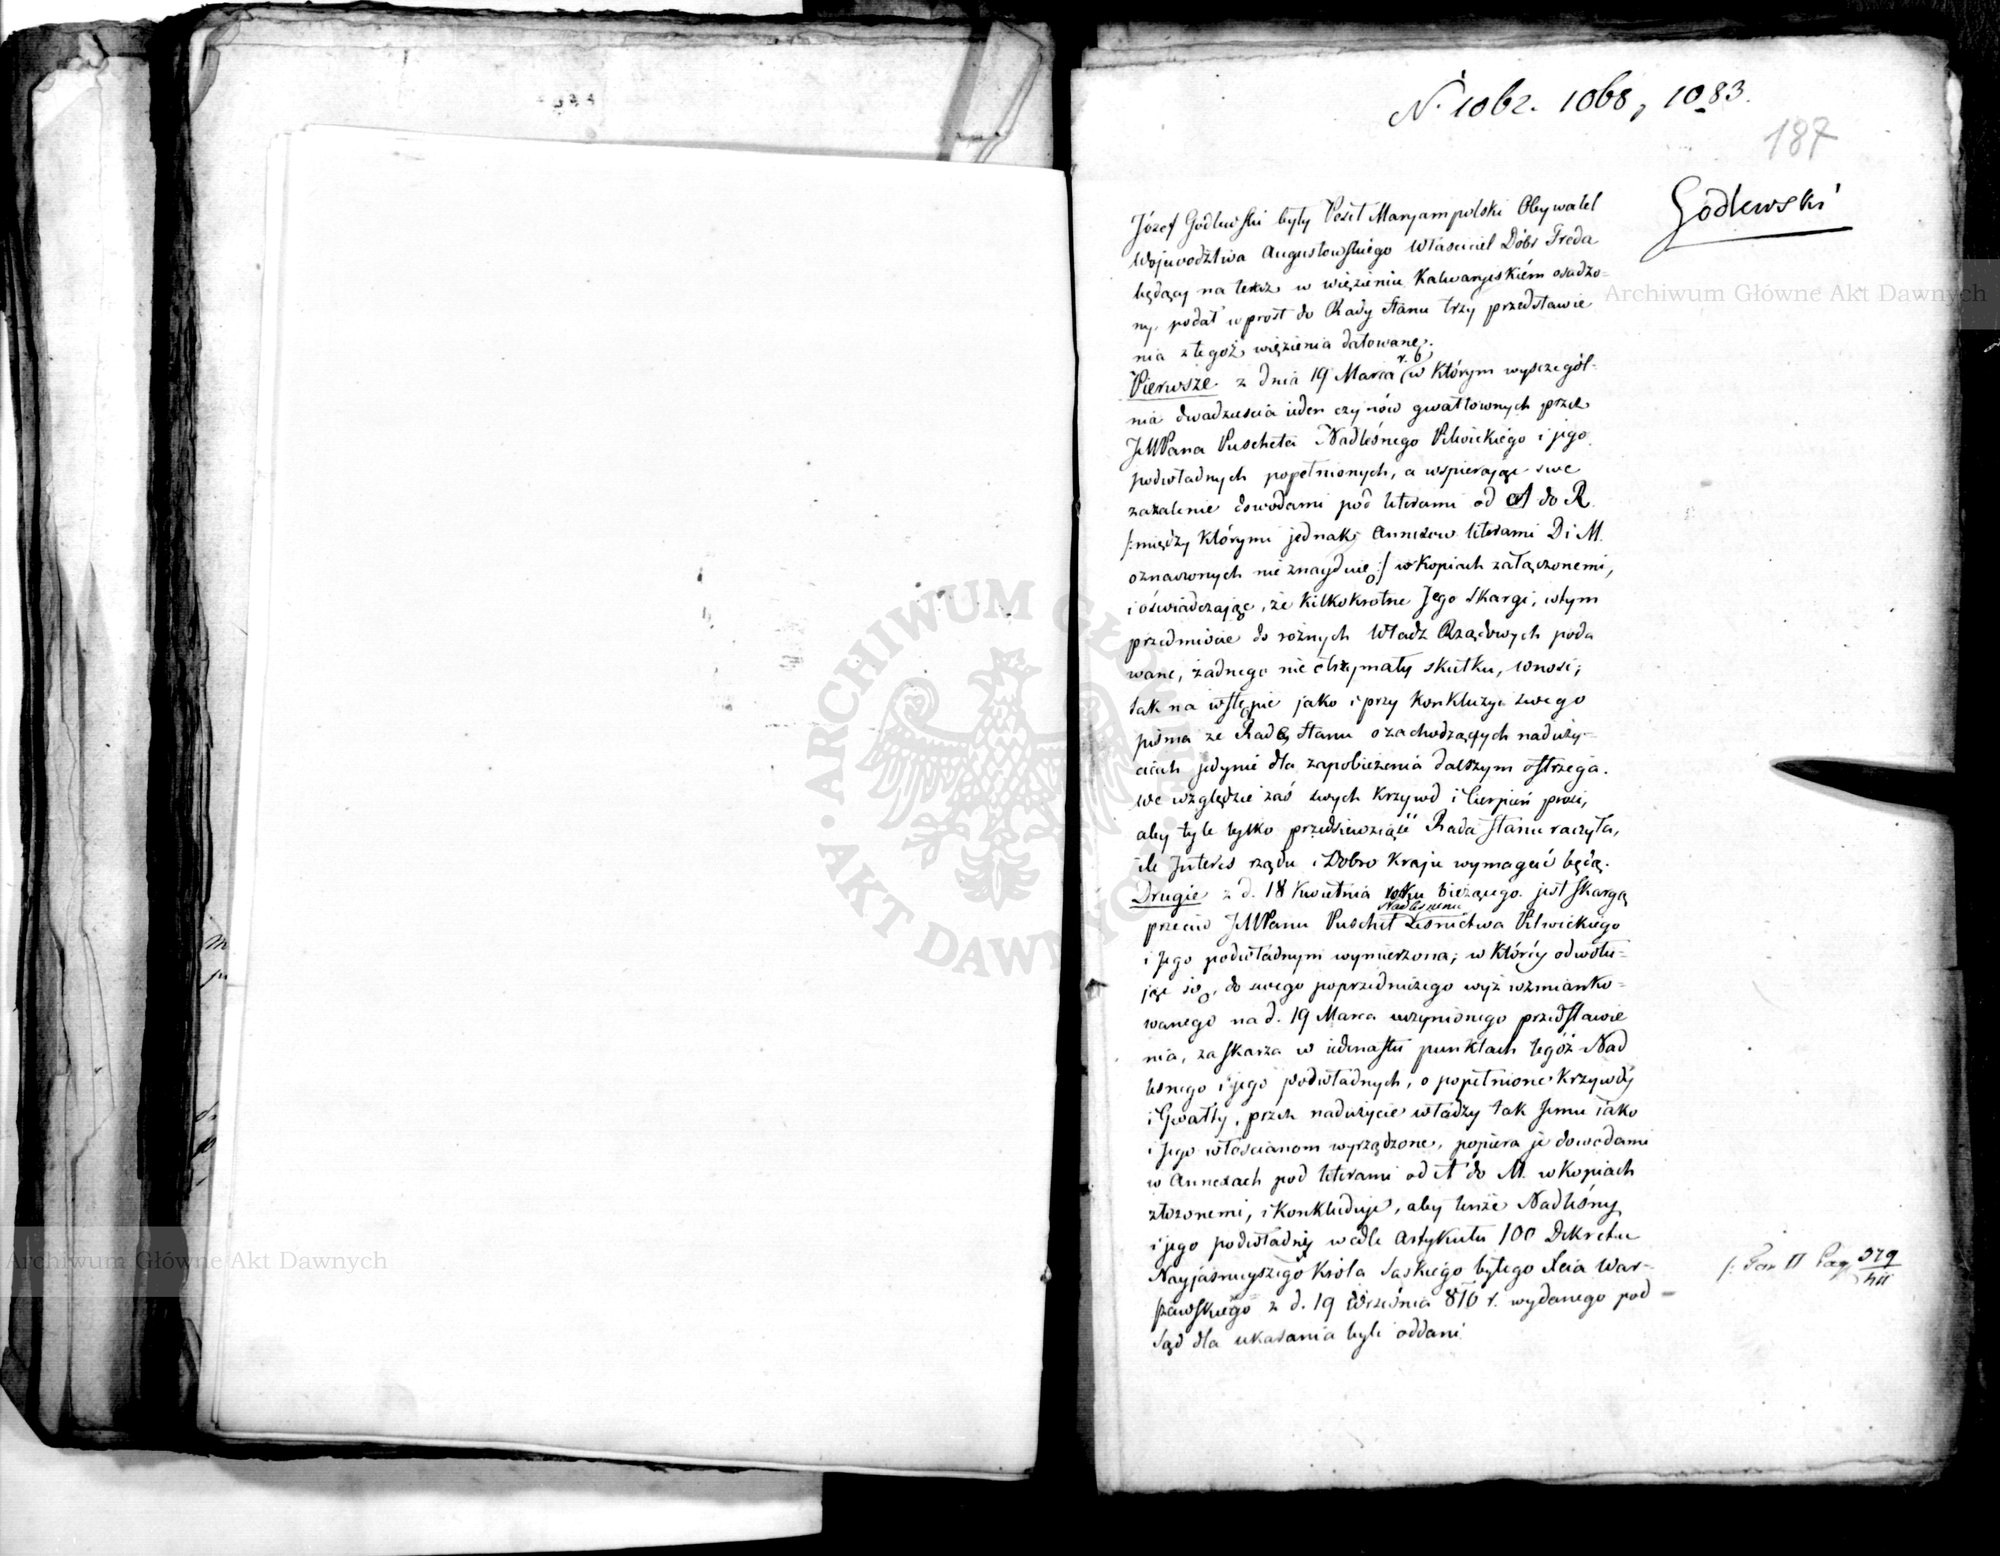 N. 1062. 1068, 1083.
187
Godlewski
Józef Godlewski były Poseł Maryampolski Obywatel
Wojewodztwa Augustowskiego Właściciel Dóbr Freda
będący na teraz w więzieniu Kalwaryiskiém osadzo-
ny, podał wprost do Rady Stanu trzy przedstawie
nia z tegoż więzienia datowane.
Pierwsze z dnia 19 Marca r. b. w którym wyszczegól-
nia dwadzieścia ieden czynów gwałtownych przez
JWPana Puscheta Nadleśnego Pilwickiego i jego
podwładnych popełnionych, a wspierając swe
zażalenie dowodami pod literami od A do R.
/:między któremi jednak Annexow literami D i M.
oznaczonych nie znayduie:/ w kopiach załączonemi,
i oświadczając, że kilkokrotne Jego skargi, w tym
przedmiocie do różnych Władz Rządowych poda
wane, żadnego nie otrzymały skutku, wnosi;
tak na wstępie jako i przy konkluzyi swego
pisma ze Radę Stanu o zachodzących naduży-
ciach jedynie dla zapobieżenia dalszym ostrzega.
we względzie zaś swych Krzywd i Cierpień prosi,
aby tyle tylko przedsiewziąść Rada Stanu raczyła,
ile Interes rządu i Dobro Kraju wymagać będą.
Drugie z d. 18 Kwietnia roku bieżącego jest skargą
Nadleśnemu
przeciw JWPanu Puschet Leśnictwa Pilwickiego
i Jego podwładnym wymierzona; w któréy odwołu-
jąc się, do swego poprzedniczego wyż wzmianko-
wanego na d. 19 Marca uczynionego przedstawie
nia, zaskarza w iedenastu punktach tegoż Nad
leśnego i jego podwładnych, o popełnione krzywdy
i Gwałty, przez nadużycie władzy tak Jemu iako
i Jego włościanom wyrządzone, popiera je dowodami
w Annexach pod literami od A do M. w kopiach
złożonemi, i konkluduje, aby tenże Nadleśny
i jego podwładni wedle Artykułu 100 Dekretu
Nayjaśnieyszego Króla Saskiego byłego Xcia War-
szawskiego z d. 19 Września 810 r. wydanego pod
Sąd dla ukarania byli oddani
/: Tom II Pag
Archiwum Główne Akt Dawnych
Archiwum Główne Akt Dawnych
ARCHIWUM GŁÓWNE AKT DAWNYCH